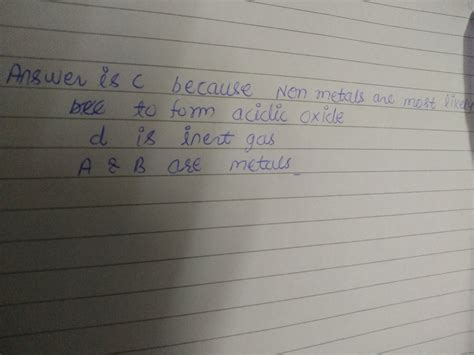 Answer is C because Non metals are most likely
to form acidic oxide
d is inert gas
A & B are metals